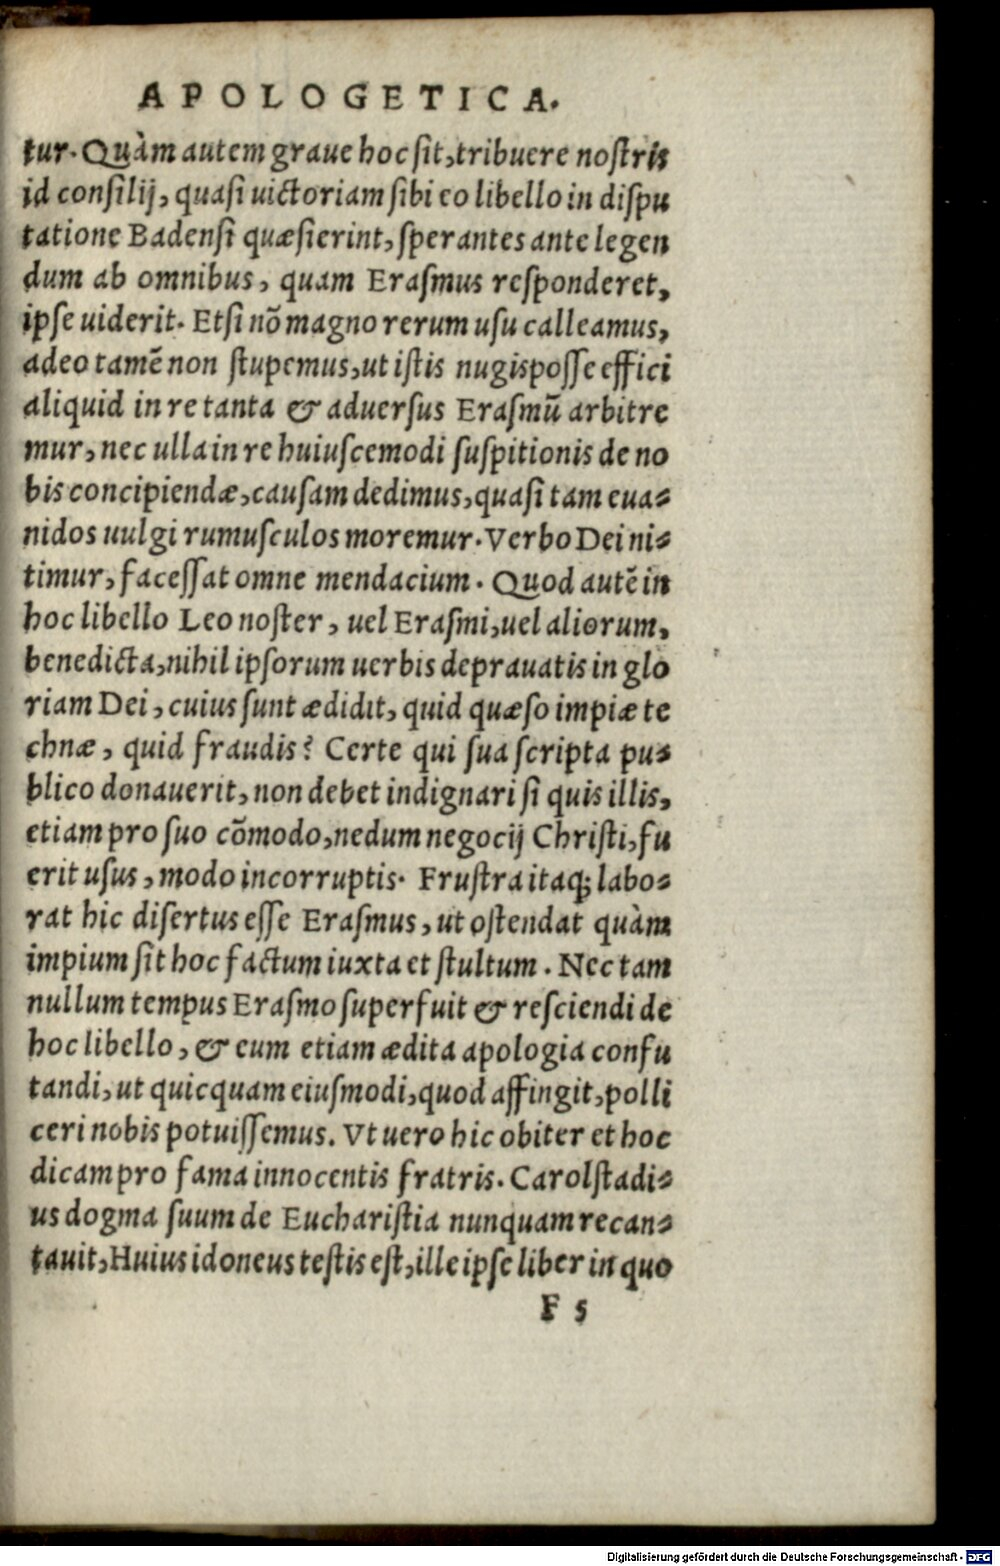 APOLOGETICA.
tur. Quàm autem graue hoc sit, tribuere nostris
id consilij, quasi uictoriam sibi eo libello in dispu
tatione Badensi quæsierint, sperantes ante legen
dum ab omnibus, quam Erasmus responderet,
ipse uiderit. Etsi nõ magno rerum usu calleamus,
adeo tamẽ non stupemus, ut istis nugis posse effici
aliquid in re tanta & aduersus Erasmũ arbitre
mur, nec ulla in re huiuscemodi suspitionis de no
bis concipiendæ, causam dedimus, quasi tam eua-
nidos uulgi rumusculos moremur. Verbo Dei ni-
timur, facessat omne mendacium. Quod autẽ in
hoc libello Leo noster, uel Erasmi, uel aliorum,
benedicta, nihil ipsorum uerbis deprauatis in glo
riam Dei, cuius sunt ædidit, quid quæso impiæ te
chnæ, quid fraudis? Certe qui sua scripta pu-
blico donauerit, non debet indignari si quis illis,
etiam pro suo cõmodo, nedum negocij Christi, fu
erit usus, modo incorruptis. Frustra itaq; labo-
rat hic disertus esse Erasmus, ut ostendat quàm
impium sit hoc factum iuxta et stultum. Nec tam
nullum tempus Erasmo superfuit & resciendi de
hoc libello, & eum etiam ædita apologia confu
tandi, ut quicquam eiusmodi, quod affingit, polli
ceri nobis potuissemus. Vt uero hic obiter et hoc
dicam pro fama innocentis fratris. Carolstadi-
us dogma suum de Eucharistia nunquam recan-
tauit, Huius idoneus testis est, ille ipse liber in quo
F 5
Digitalisierung gefördert durch die Deutsche Forschungsgemeinschaft - DFG